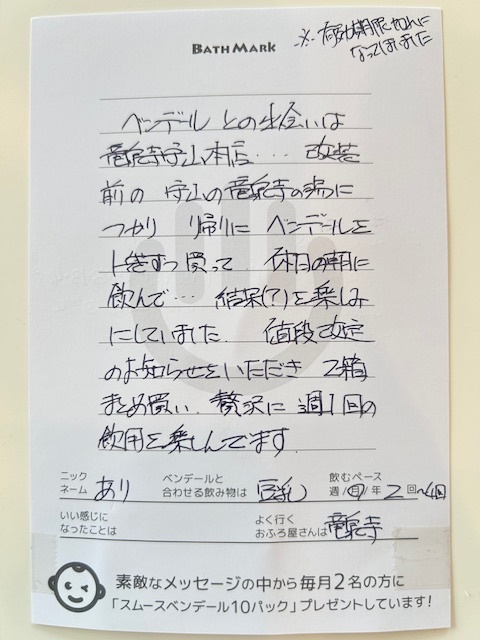 BATH MARK
※有効期限切れに
なってしまいました
ベンデールとの出会いは
竜泉寺守山本店... 改装
前の 守山の竜泉寺の湯に
つかり 帰りに ベンデールを
1包ずつ買って 休日の朝に
飲んで... 結果(?)を楽しみ
にしていました. 値段改定
のお知らせをいただき 2箱
まとめ買い. 贅沢に 週1回の
飲用を楽しんでます.
ニックネーム あり ベンデールと合わせる飲み物は 豆乳 飲むペース 週/月/年 2回〜4回
いい感じになったことは よく行くおふろ屋さんは 竜泉寺
素敵なメッセージの中から毎月2名の方に
「スムースベンデール10パック」プレゼントしています!